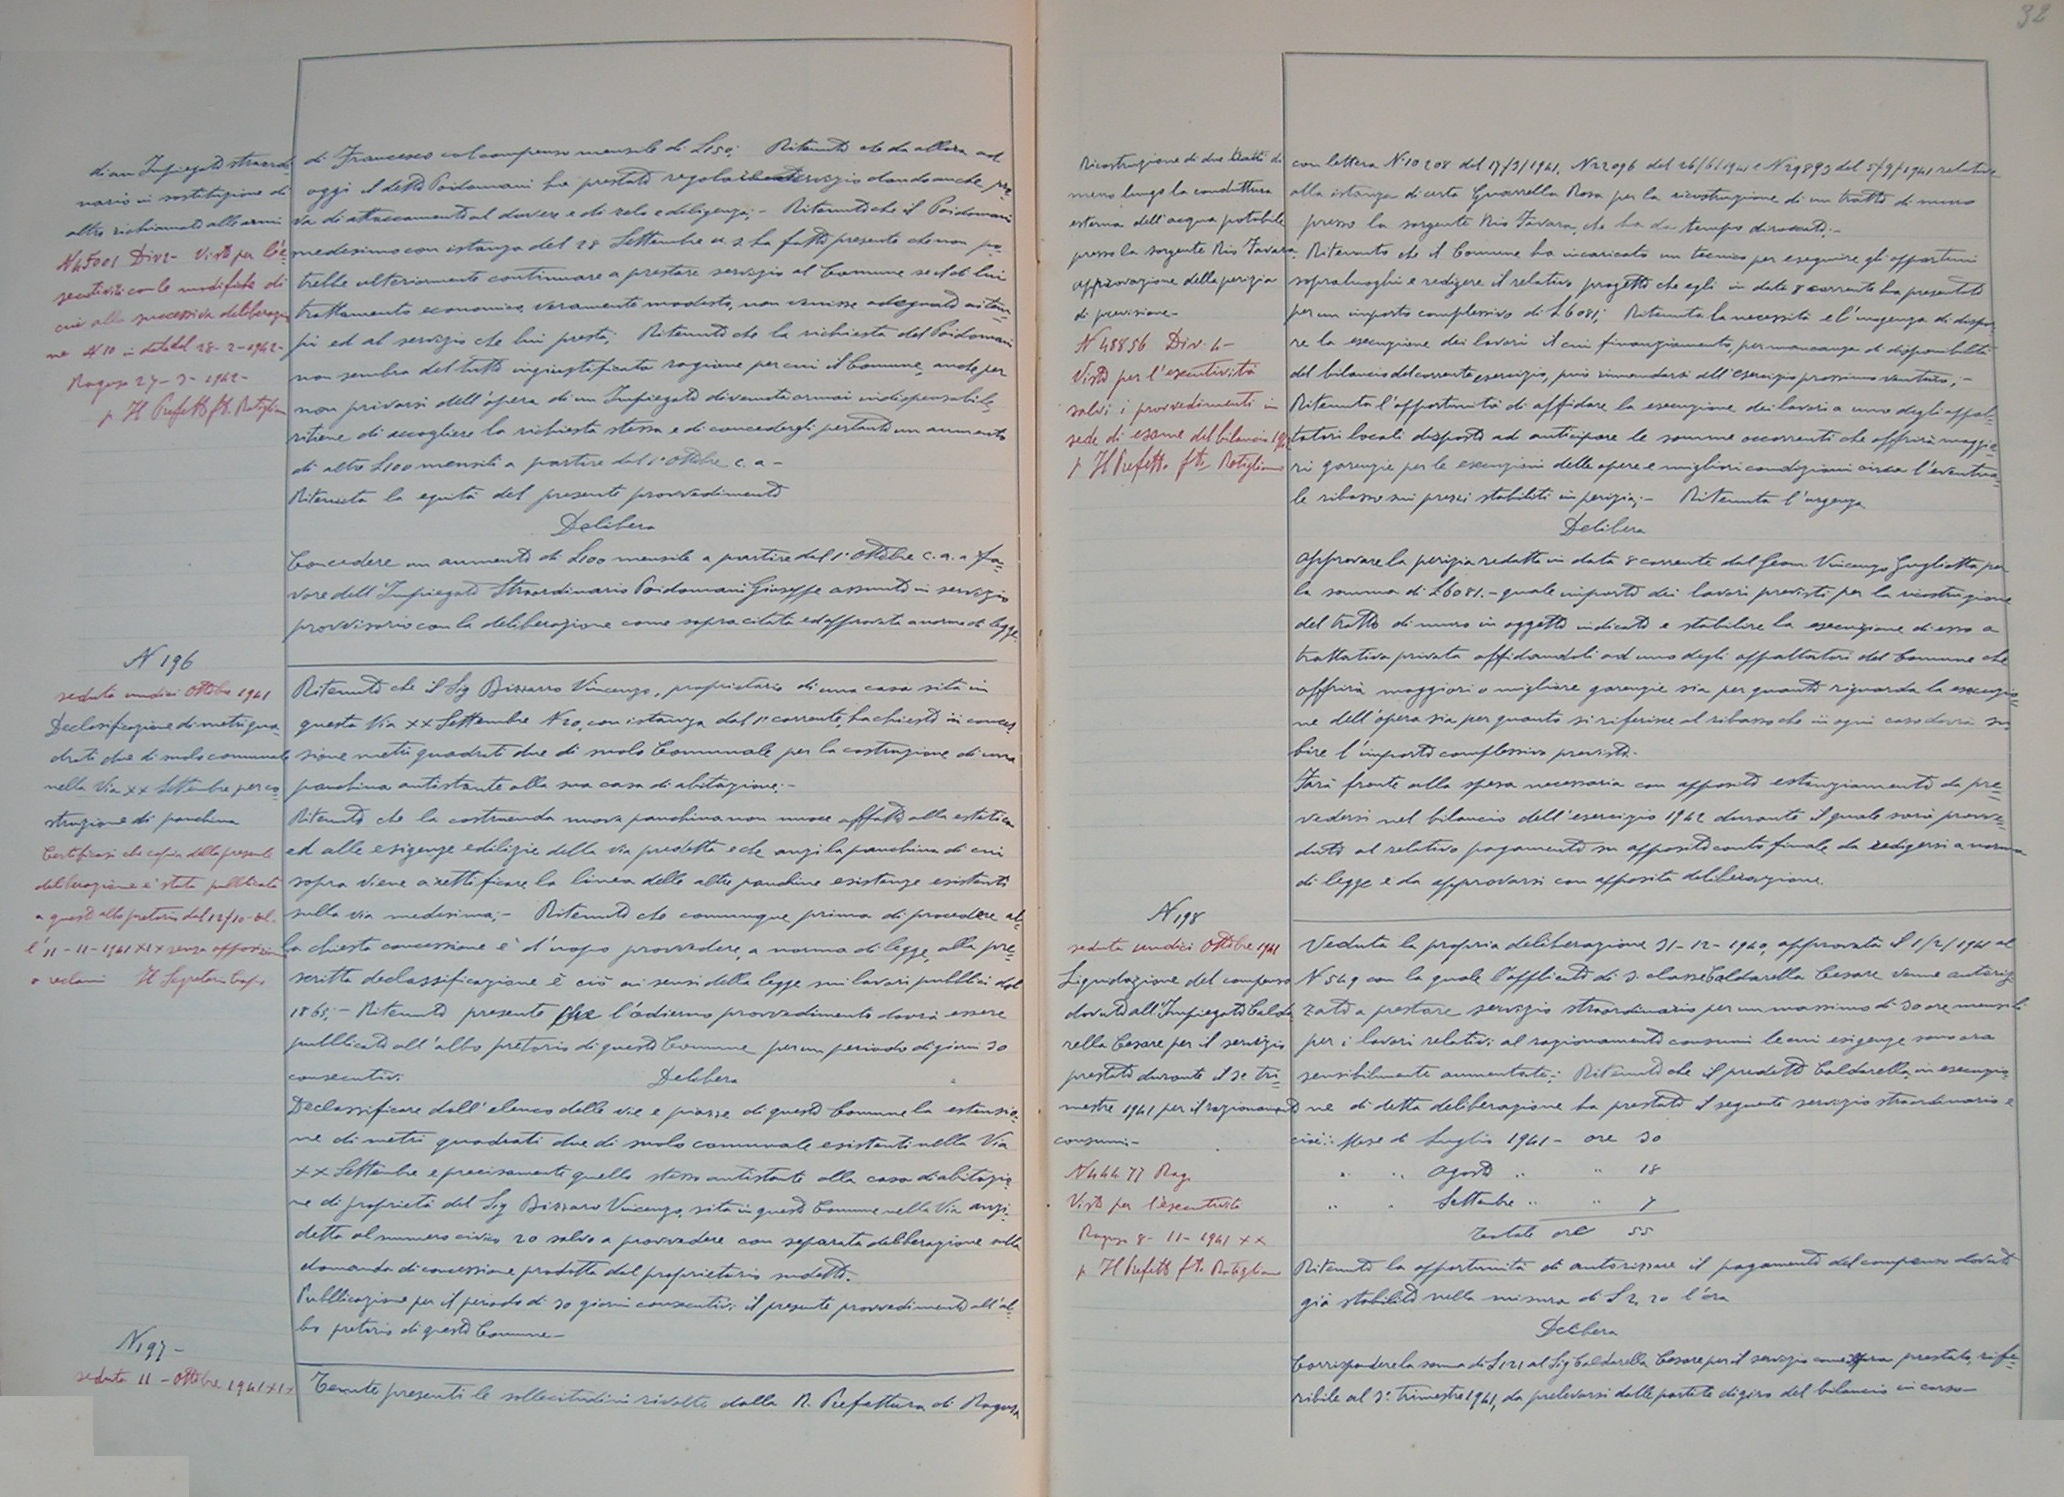 32
di un Impiegato straordi
nario in sostituzione di
altro richiamato alle armi
N 45001 Div 2- Visto per l'e-
secutività con le modifiche di
cui alla successiva deliberazio
ne N 10 in data del 28-2-1942-
Ragusa 27-3-1942-
p Il Prefetto fto Ratiglia
di Francesco col compenso mensile di £150; Ritenuto che da allora ad
oggi il detto Poidomani ha prestato regolare servizio dando anche pro
va di attaccamento al dovere e di zelo e diligenza;- Ritenuto che il Poidomani
medesimo con istanza del 28 Settembre u.s. ha fatto presente che non po
trebbe ulteriormente continuare a prestare servizio al Comune se il di lui
trattamento economico, veramente modesto, non venisse adeguato ai tem-
pi ed al servizio che lui presta; Ritenuto che la richiesta del Poidomani
non sembra del tutto ingiustificata ragione per cui il Comune, anche per
non privarsi dell'opera di un Impiegato divenuta ormai indispensabile
ritiene di accogliere la richiesta stessa e di concedergli pertanto un aumento
di altre £100 mensili a partire dal 1° Ottobre c.a-
Ritenuta la equità del presente provvedimento
Delibera
Concedere un aumento di £100 mensile a partire dal 1° Ottobre c.a. a fa-
vore dell'Impiegato Straordinario Poidomani Giuseppe assunto in servizio
provvisorio con la deliberazione come sopra citata ed approvata a norma di legge.
N 196
seduta undici Ottobre 1941
Declassificazione di metri qua
drati due di suolo comunale
nella Via XX Settembre per co
struzione di panchina
Certificasi che copia della presente
deliberazione è stata pubblicata
a quest'albo pretorio dal 12/10- al-
l'11-11-1941 XIX senza opposizioni
o reclami Il Segretario Capo
Ritenuto che il Sig Bizzarro Vincenzo, proprietario di una casa sita in
questa Via XX Settembre N 20, con istanza dal 1° corrente, ha chiesto in conces
sione metri quadrati due di suolo Comunale per la costruzione di una
panchina antistante alla sua casa di abitazione:-
Ritenuto che la costruenda nuova panchina non nuoce affatto alla estetica
ed alle esigenze edilizie della via predetta e che anzi la panchina di cui
sopra viene a rettificare la linea delle altre panchine esistenze esistenti
sulla via medesima;- Ritenuto che comunque prima di procedere al-
la chiesta concessione è d'uopo provvedere, a norma di legge, alla pre-
scritta declassificazione e ciò ai sensi della legge sui lavori pubblici del
1865;- Ritenuto presente che l'odierno provvedimento dovrà essere
pubblicato all'albo pretorio di questo Comune per un periodo di giorni 30
consecutivi Delibera
Declassificare dall'elenco delle vie e piazze di questo Comune la estensio-
ne di metri quadrati due di suolo comunale esistenti nella Via
XX Settembre e precisamente quello stesso antistante alla casa di abitazio-
ne di proprietà del Sig Bizzarro Vincenzo, sita in questo Comune nella Via anzi-
detta al numero civico 20 salvo a provvedere con separata deliberazione sulla
domanda di concessione prodotta dal proprietario sudetto.
Pubblicazione per il periodo di 30 giorni consecutivi il presente provvedimento all'al-
bo pretorio di questo Comune-
N 197-
seduta 11 - Ottobre 1941 XIX
Tenute presenti le sollecitudini rivolte dalla R. Prefettura di Ragusa
Ricostruzione di due tratti di
muro lungo la conduttura
esterna dell'acqua potabile
presso la sorgente Rio Favara.
approvazione della perizia
di previsione-
N 48856 Div. 4-
Visto per l'esecutività
salvi i provvedimenti in
sede di esame del bilancio 1942
p Il Prefetto fto Ratiglia
con lettera N 10208 del 17/3/1941, N 22096 del 26/6/1941 e N 29893 del 5/9/1941 relative
alla istanza di certa Guarrella Rosa per la ricostruzione di un tratto di muro
presso la sorgente Rio Favara, che ha da tempo diroccato;-
Ritenuto che il Comune ha incaricato un tecnico per eseguire gli opportuni
sopraluoghi e redigere il relativo progetto che egli in data 8 corrente ha presentato
per un importo complessivo di £6081; Ritenuta la necessità e l'urgenza di dispor
re la esecuzione dei lavori il cui finanziamento, per mancanza di disponibilità
del bilancio del corrente esercizio, può rimandarsi all'esercizio prossimo venturo;-
Ritenuta l'opportunità di affidare la esecuzione dei lavori a uno degli appal-
tatori locali disposto ad anticipare le somme occorrenti che offrirà maggio-
ri garenzie per le esecuzioni delle opere e migliori condizioni circa l'eventua-
le ribasso sui prezzi stabiliti in perizia;- Ritenuta l'urgenza
Delibera
Approvare la perizia redatta in data 8 corrente dal Geom Vincenzo Gugliotta per
la somma di £6081.- quale importo dei lavori previsti per la ricostruzione
del tratto di muro in oggetto indicato e stabilire la esecuzione di esso a
trattativa privata affidandoli ad uno degli appaltatori del Comune che
offrirà maggiori o migliore garenzie sia per quanto riguarda la esecuzio-
ne dell'opera sia per quanto si riferisce al ribasso che in ogni caso dovrà su-
bire l'importo complessivo previsto.
Farà fronte alla spesa necessaria con apposito estanziamento da pre-
vedersi nel bilancio dell'esercizio 1942 durante il quale sarà provve-
duto al relativo pagamento su apposito conto finale da redigersi a norma
di legge e da approvarsi con apposita deliberazione.
N 198
seduta undici Ottobre 1941
Liquidazione del compenso
dovuto all'Impiegato Calda
rella Cesare per il servizio
prestato durante il 3° tri-
mestre 1941 per il razionamento
consumi-
N 44477 Rag.
Visto per l'esecutività
Ragusa 8-11-1941 XX
p Il Prefetto fto Ratiglia
Veduta la propria deliberazione 31-12-1940, approvata il 1/2/1941 al
N 549 con la quale l'applicato di 3 classe Caldarella Cesare venne autoriz
zato a prestare servizio straordinario per un massimo di 30 ore mensili
per i lavori relativi al razionamento consumi le cui esigenze sono ora
sensibilmente aumentate; Ritenuto che il predetto Caldarella, in esecuzio-
ne di detta deliberazione ha prestato il seguente servizio straordinario e
cioè: Mese di Luglio 1941- ore 30
" " Agosto " " 18
" " Settembre " " 7
Totale ore 55
Ritenuta la opportunità di autorizzare il pagamento del compenso dovuto
già stabilito nella misura di £ 2,20 l'ora
Delibera
Corrispondere la somma di £121 al Sig Caldarella Cesare per il servizio come sopra prestato, rife-
ribile al 3° trimestre 1941, da prelevarsi dalle partite di giro del bilancio in corso-